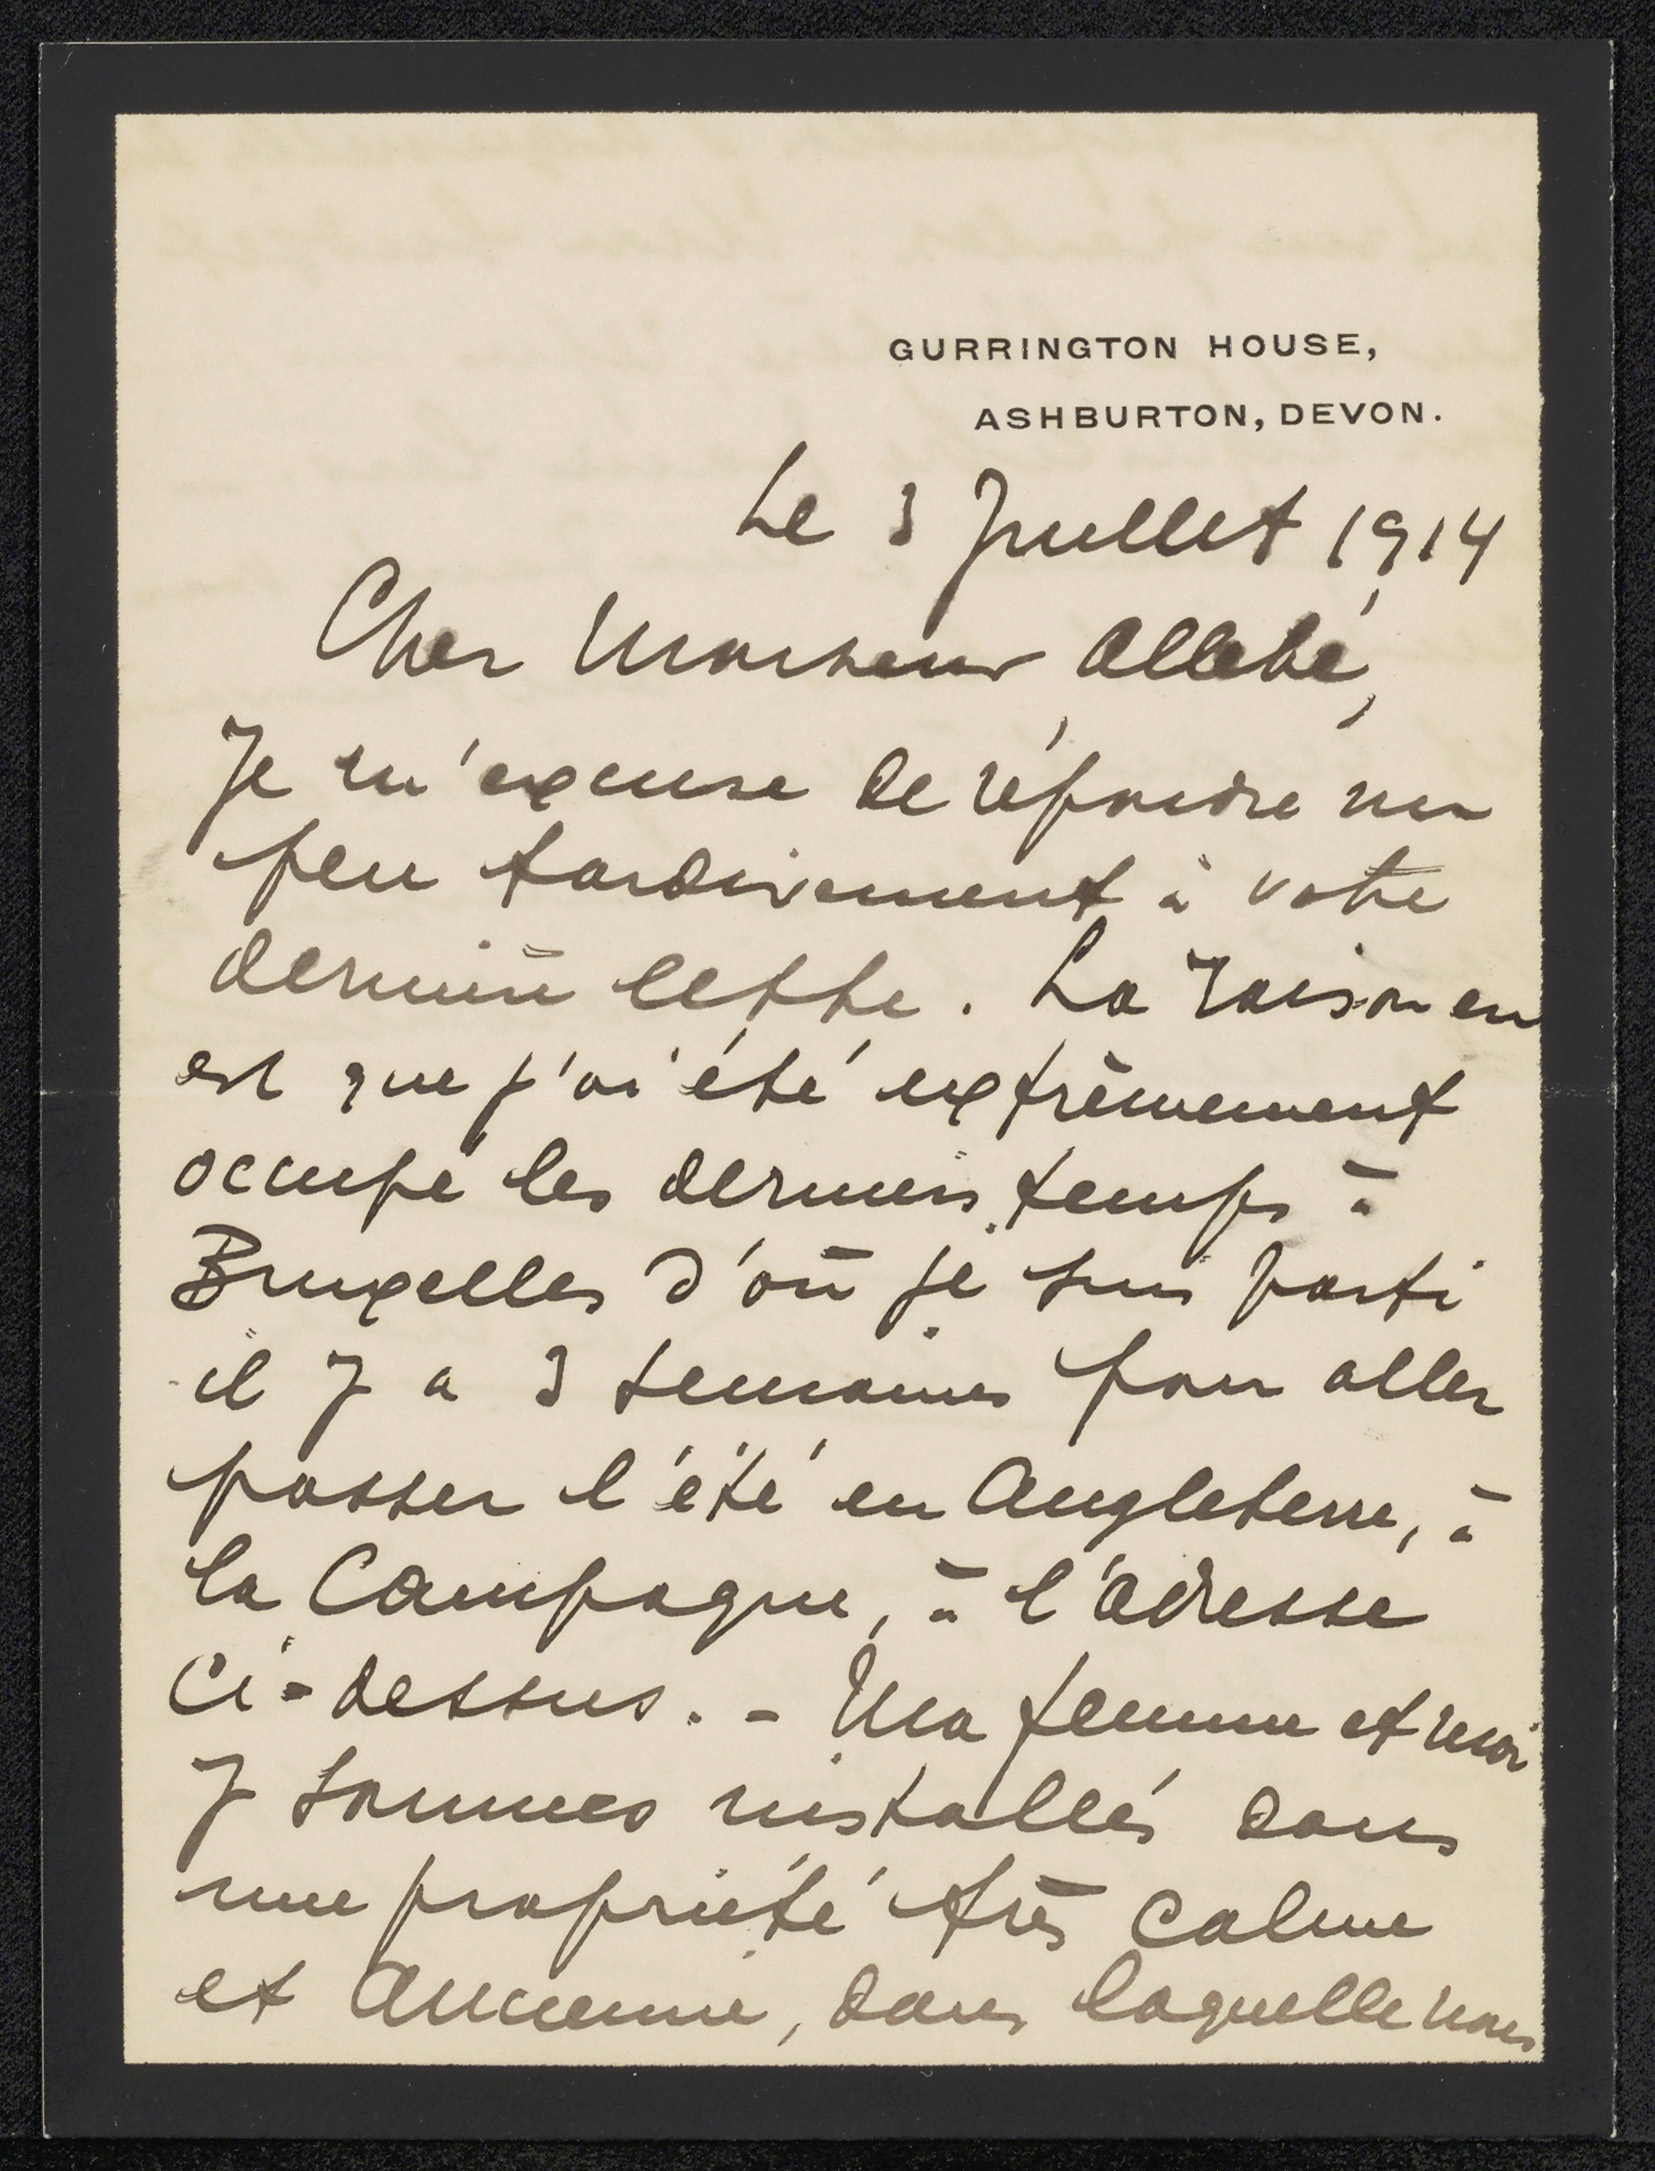 GURRINGTON HOUSE,
ASHBURTON, DEVON.
Le 3 Juillet 1914
Cher Monsieur Allebé,
Je m'excuse de répondre un
peu tardivement à votre
dernière lettre. La raison en
est que j'ai été extrêmement
occupé les derniers temps à
Bruxelles d'où je suis parti
il y a 3 semaines pour aller
passer l'été en Angleterre, à
la Campagne, à l'adresse
ci-dessus. - Ma femme et moi
y sommes installés dans
une propriété très calme
et ancienne, dans laquelle nous